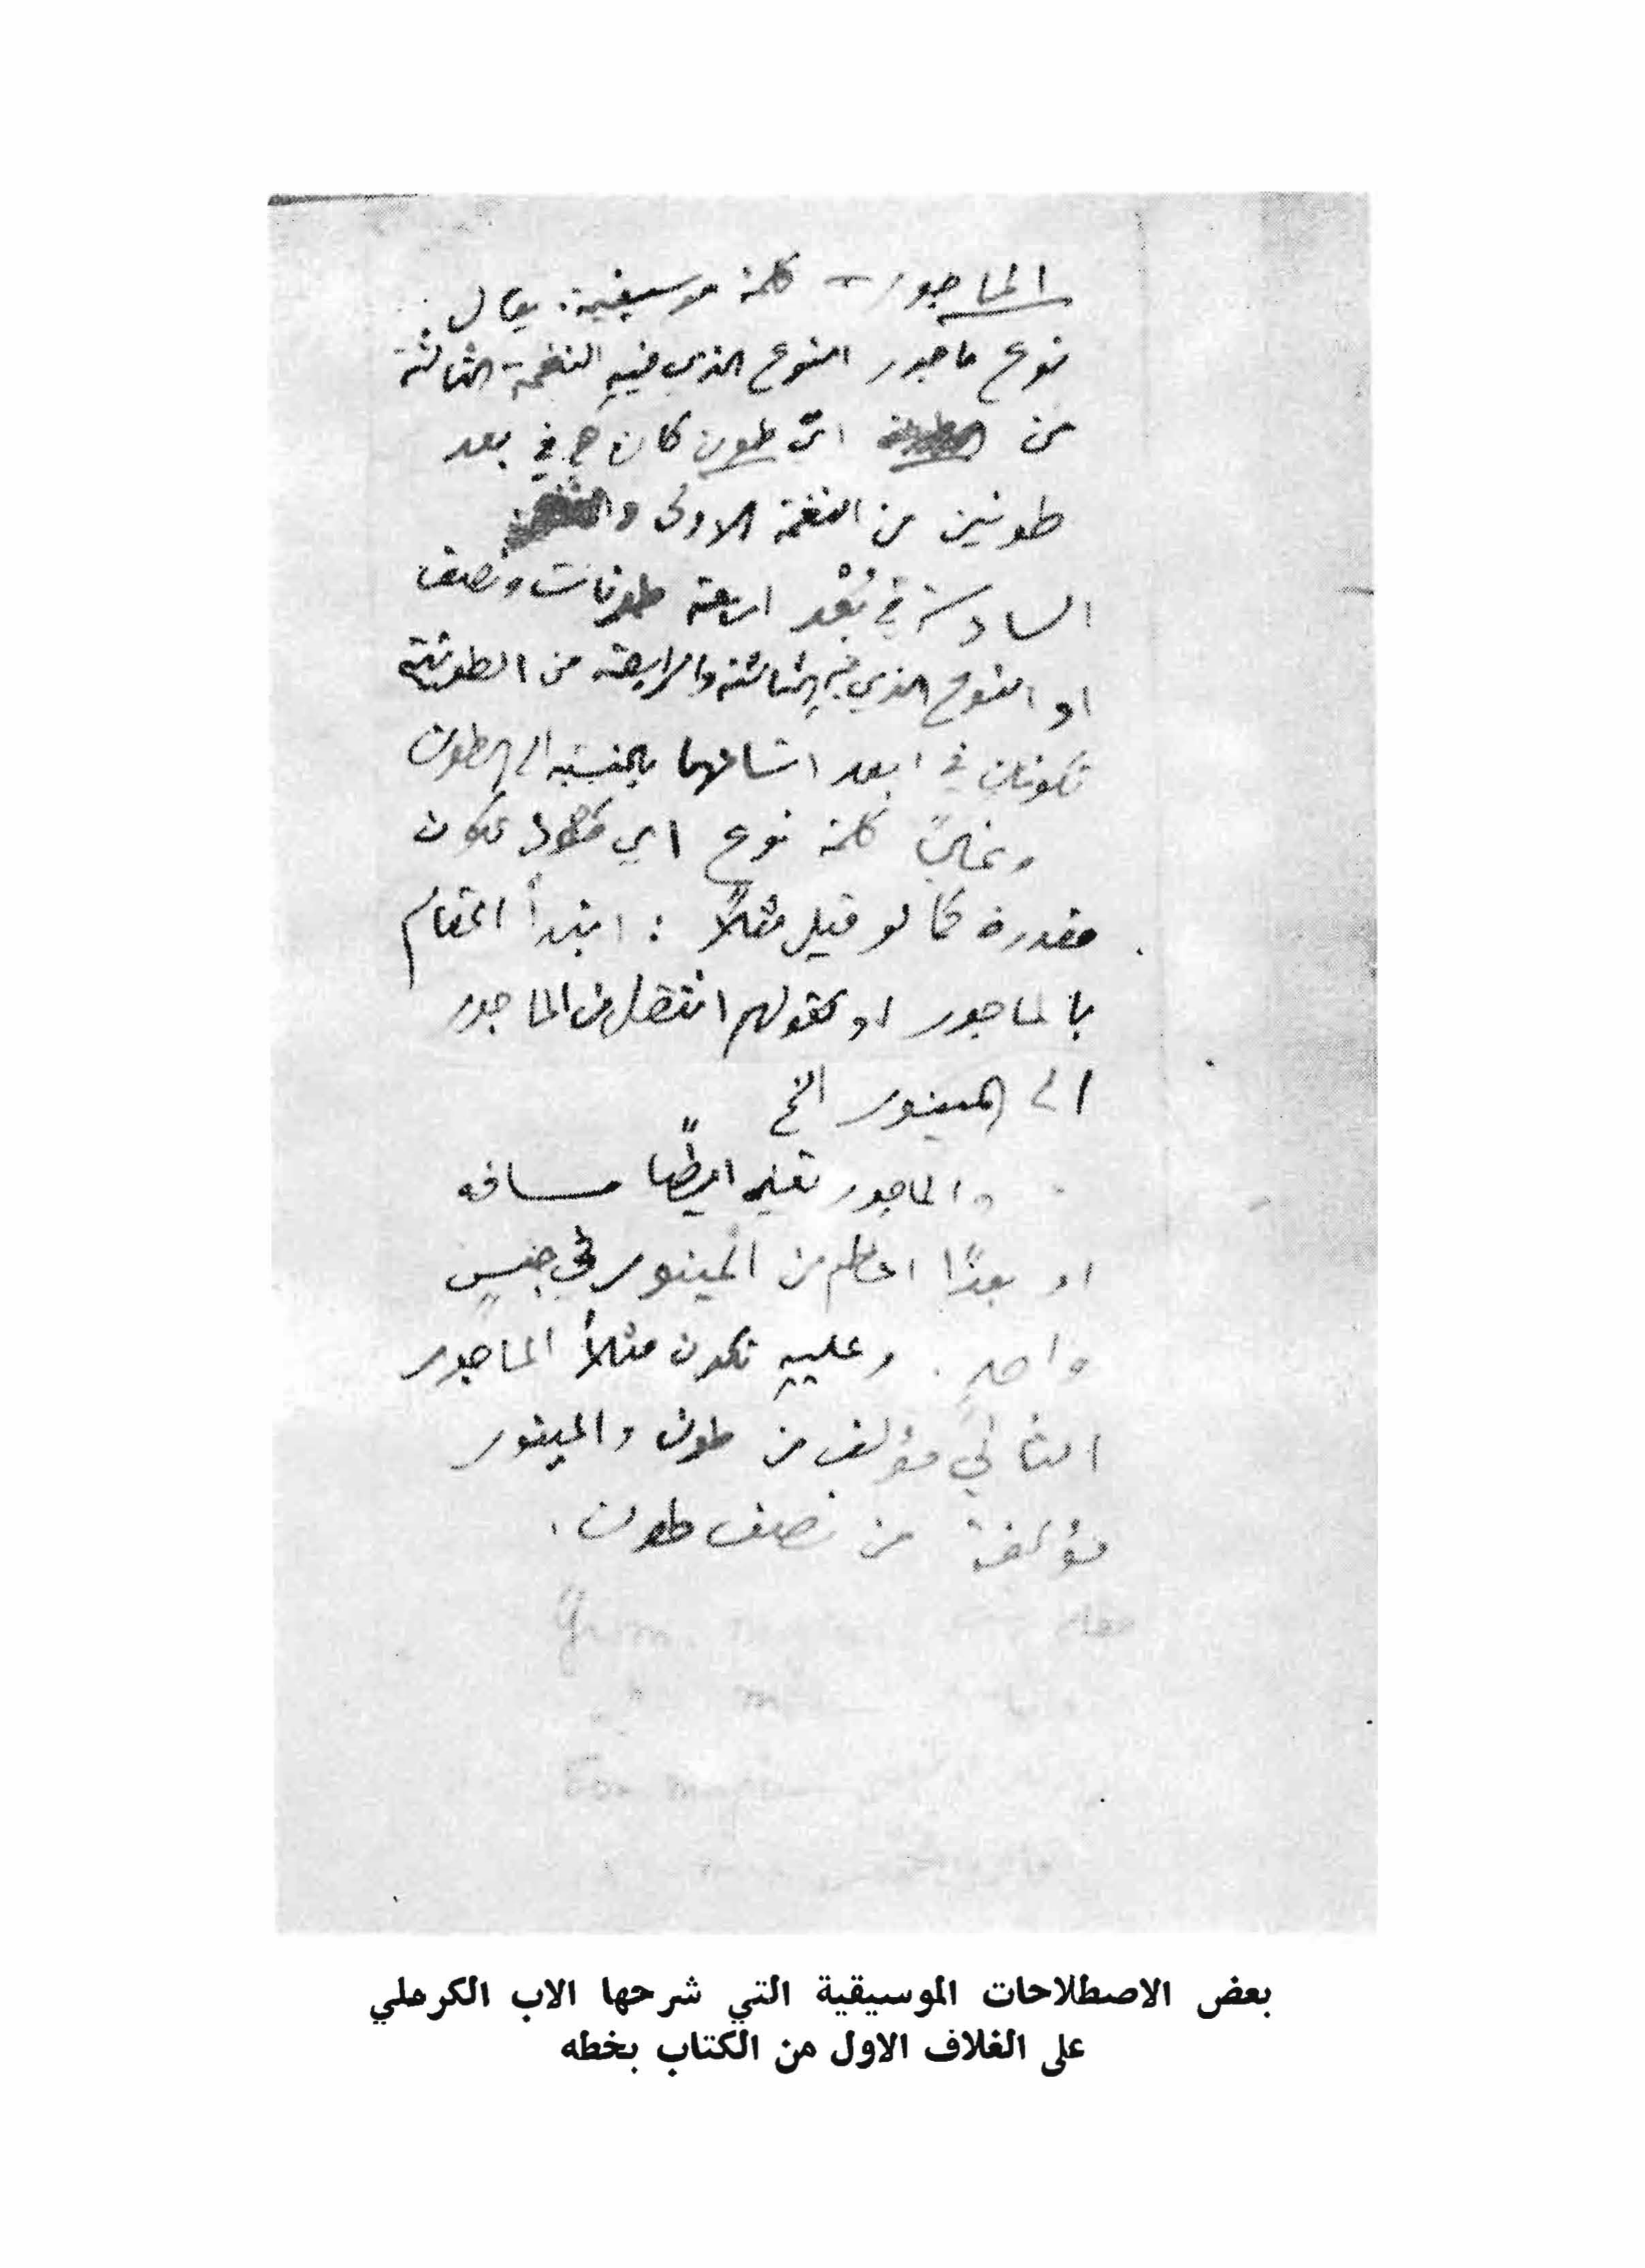 الماجور – كلمة موسيقية. يقال
نوع ماجور النوع الذي فيهِ النغمة الثالثة
من ايّ طون كان هي في بعد
طونين من النغمة الاولى و
السادسة في بُعْد اربعة طونات ونصف
او النوع الذي فيهِ الثالثة والرابعة من الطونيقة
تكونان في ابعد اتساعهما بالنسبة الى الطون
وغالبًا كلمة نوع اي تكون
مقدرة كما لو قيل مثلاً : ابتدأ المقام
بالماجور او كقولهم انتقل من الماجور
الى المينور الخ
والماجور تفيد ايضًا مسافة
او بعدًا اعظم من المينور في جنسٍ
واحدٍ . وعليهِ تكون مثلاً الماجور
الثاني مؤلف من طون والمينور
مؤلفة من نصف طون .
بعض الاصطلاحات الموسيقية التي شرحها الاب الكرملي
على الغلاف الاول من الكتاب بخطه